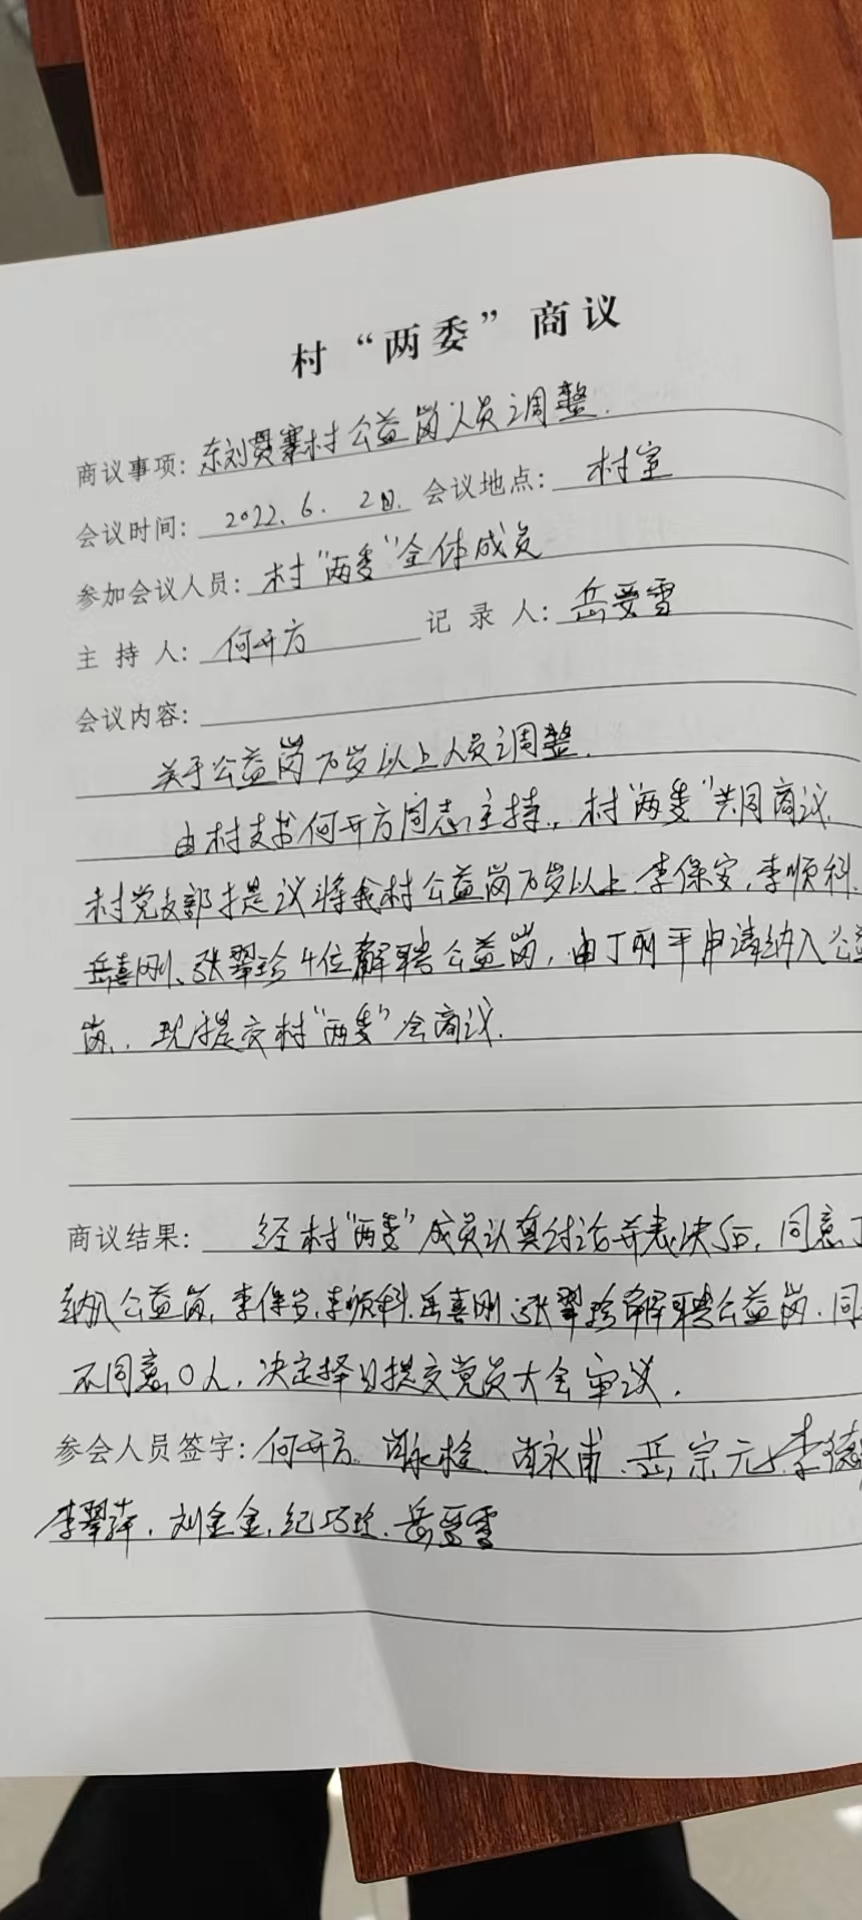 村“两委”商议
商议事项：东刘贾寨村公益岗人员调整.
会议时间：2022.6.2日. 会议地点：村室
参加会议人员：村“两委”全体成员
主持人：何开方 记录人：岳爱雪
会议内容：
关于公益岗70岁以上人员调整.
由村支书何开方同志主持，村“两委”共同商议.
村党支部提议将我村公益岗70岁以上李保安,李顺科、
岳喜刚、张翠珍4位解聘公益岗,由丁丽平申请纳入公益
岗.现提交村“两委”会商议.
商议结果：经村“两委”成员认真讨论并表决后,同意丁
纳入公益岗,李保安,李顺科.岳喜刚.张翠珍解聘公益岗.同
不同意0人,决定择日提交党员大会审议.
参会人员签字：何开方. 永检. 永甫.岳宗元.李德
李翠萍.刘金金.纪巧玲.岳爱雪